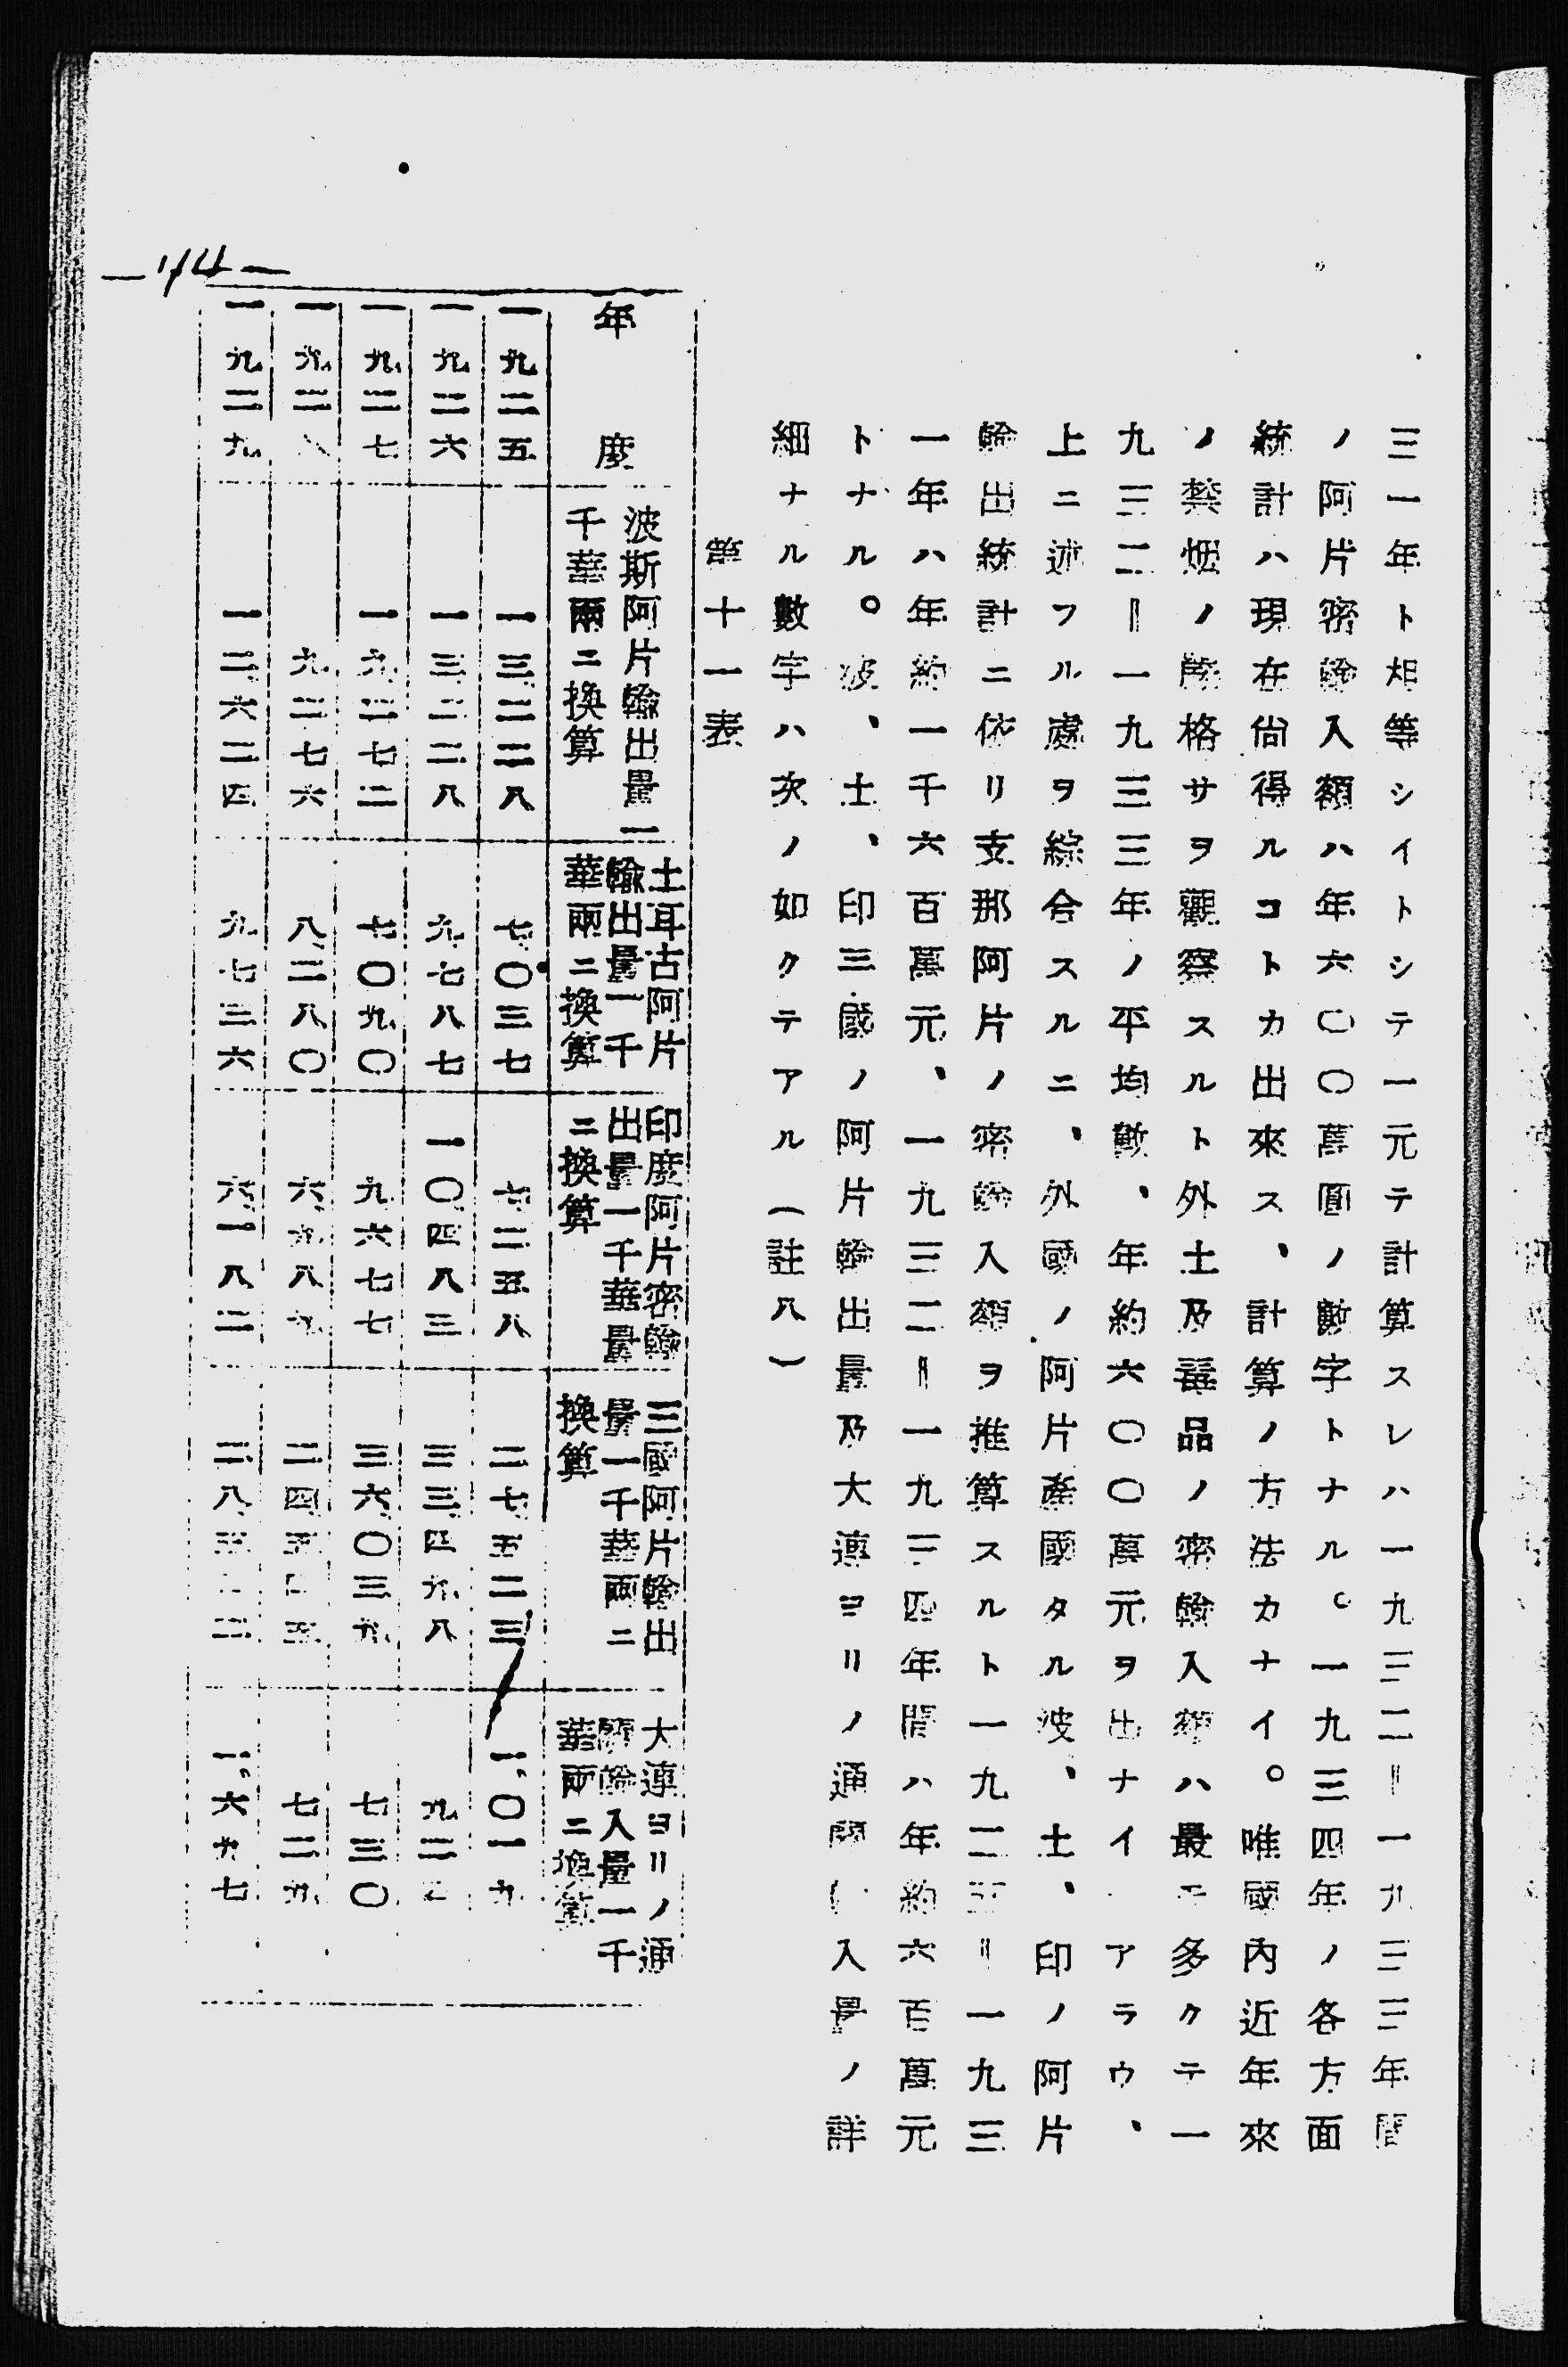 三一年ト相等シイトシテ一元テ計算スレハ一九三二＝一九三三年間
ノ阿片密輸入額ハ年六〇〇萬圓ノ數字トナル。一九三四年ノ各方面
統計ハ現在尙得ルコトカ出來ス、計算ノ方法カナイ。唯國內近年來
ノ禁烟ノ嚴格サヲ觀察スルト外土及毒品ノ密輸入額ハ最モ多クテ一
九三二＝一九三三年ノ平均數、年約六〇〇萬元ヲ出ナイテアラウ、
上ニ述フル處ヲ綜合スルニ、外國ノ阿片產國タル波、土、印ノ阿片
輸出統計ニ依リ支那阿片ノ密輸入額ヲ推算スルト一九二五＝一九三
一年ハ年約一千六百萬元、一九三二＝一九三四年間ハ年約六百萬元
トナル。波、土、印三國ノ阿片輸出量及大連ヨリノ通關入量ノ詳
細ナル數字ハ次ノ如クテアル（註八）
第十一表
年度
波斯阿片輸出量一千華兩ニ換算
土耳古阿片輸出量一千華兩ニ換算
印度阿片密輸出量一千華量ニ換算
三國阿片輸出量一千華兩ニ換算
大連ヨリノ通關輸入量一千華兩ニ換算
一九二五 一三、二二八 七、〇三七 七、二五八 二七、五二三 一、〇一九
一九二六 一三、二二八 九、七八七 一〇、四八三 三三、四九八 九二
一九二七 一九、二七二 七、〇九〇 九、六七七 三六、〇三九 七三〇
一九二八 九、二七六 八、二八〇 六、九八九 二四、五四五 七二九
一九二九 一二、六二四 九、七三六 六、一八二 二八、五 一、六九七
—14—